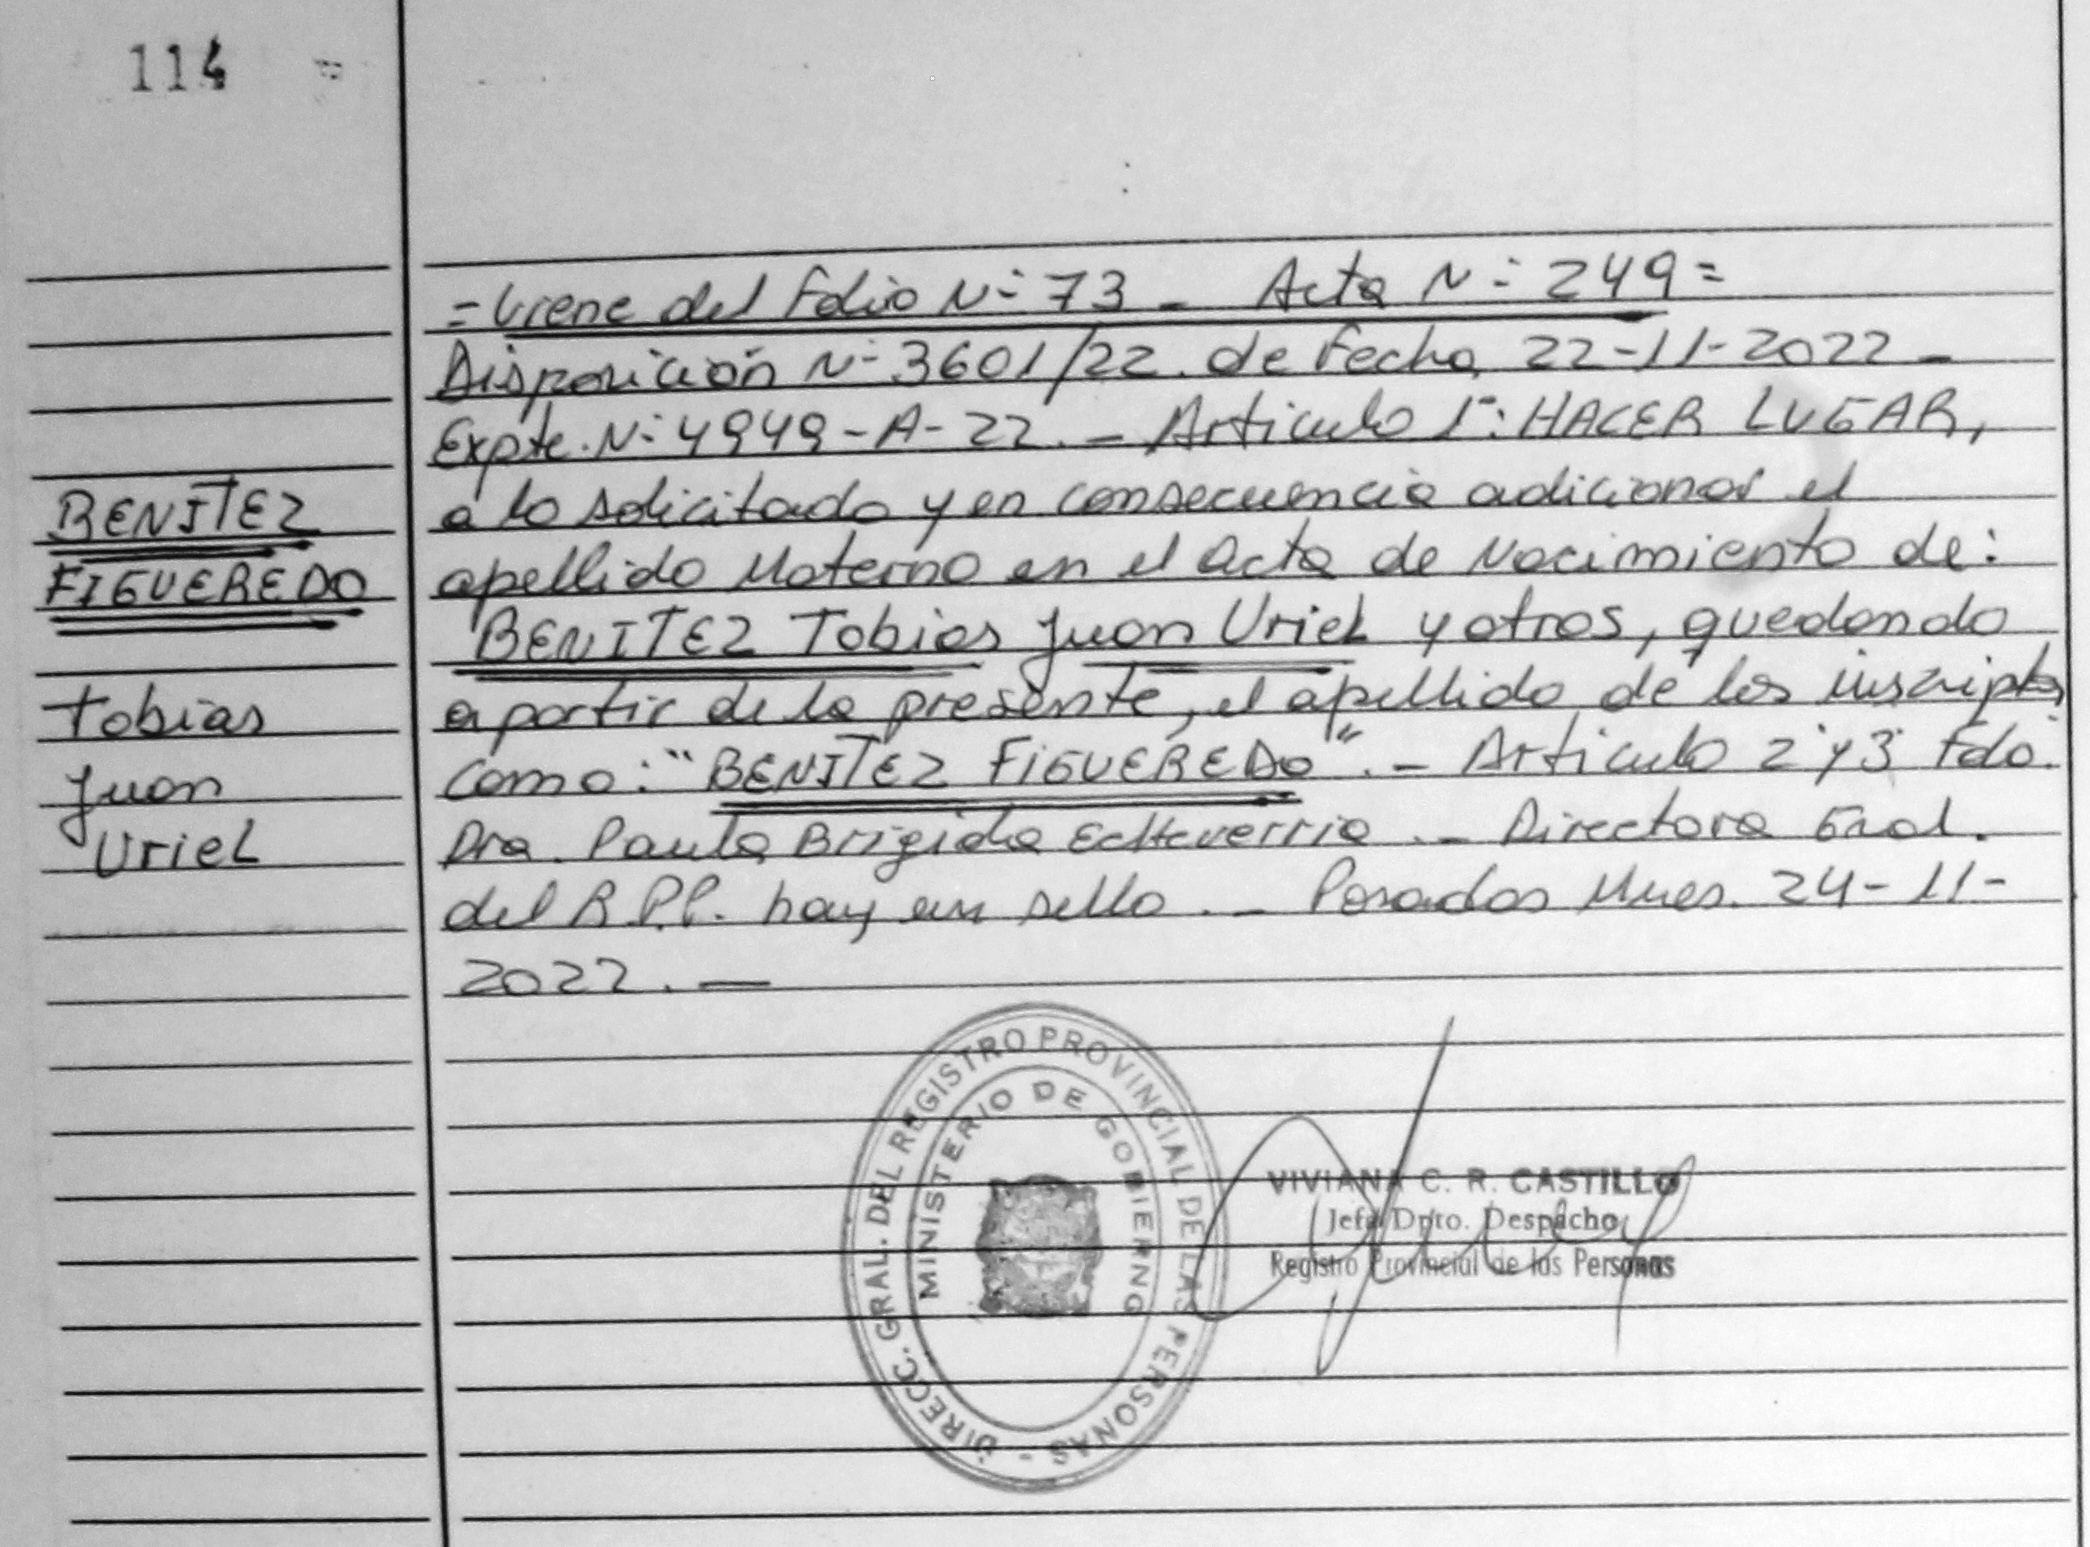 114 =
= Viene del Folio Nº 73 - Acta Nº 249 =
Disposición Nº 3601/22. de Fecha 22-11-2022 -
Expte. Nº 4949-A-22. - Articulo 1º: HACER LUGAR,
a lo solicitado y en consecuencia adicionar el
apellido Materno en el acta de Nacimiento de:
BENITEZ Tobias Juan Uriel y otros, quedando
a partir de la presente, el apellido de los inscriptos
como: "BENITEZ FIGUEREDO". - Articulo 2º y 3º Fdo.
Dra. Paula Brigida Echeverria. - Directora Gral.
del R.P.P. hay un sello. - Posadas Mnes. 24-11-
2022. -
BENITEZ
FIGUEREDO
Tobias
Juan
Uriel
DIRECC. GRAL. DEL REGISTRO PROVINCIAL DE LAS PERSONAS -
MINISTERIO DE GOBIERNO
VIVIANA C. R. CASTILLO
Jefa Dpto. Despacho
Registro Provincial de las Personas